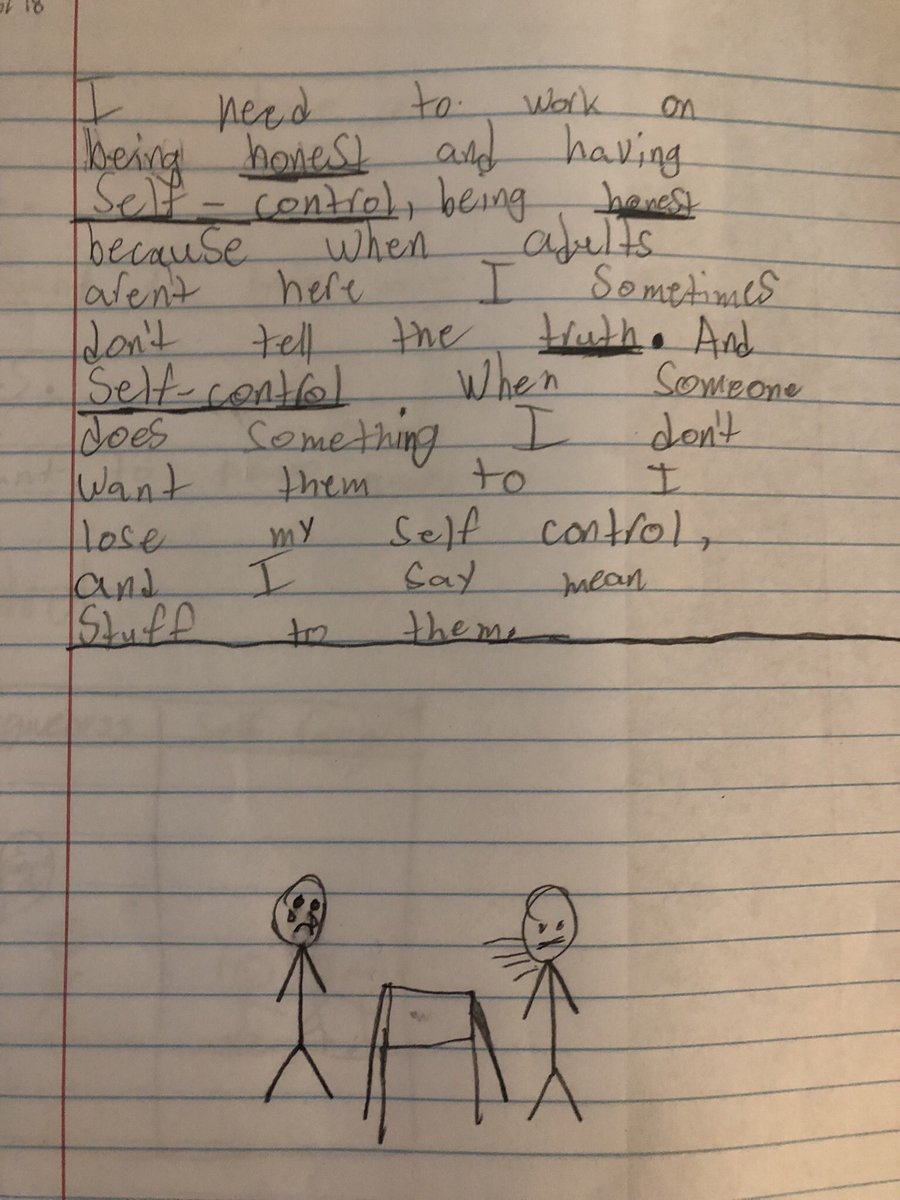 I need to work on
being honest and having
Self-control, being honest
because when adults
aren't here I Sometimes
don't tell the truth. And
Self-control when Someone
does Something I don't
want them to I
lose my Self control,
and I Say mean
Stuff to them.